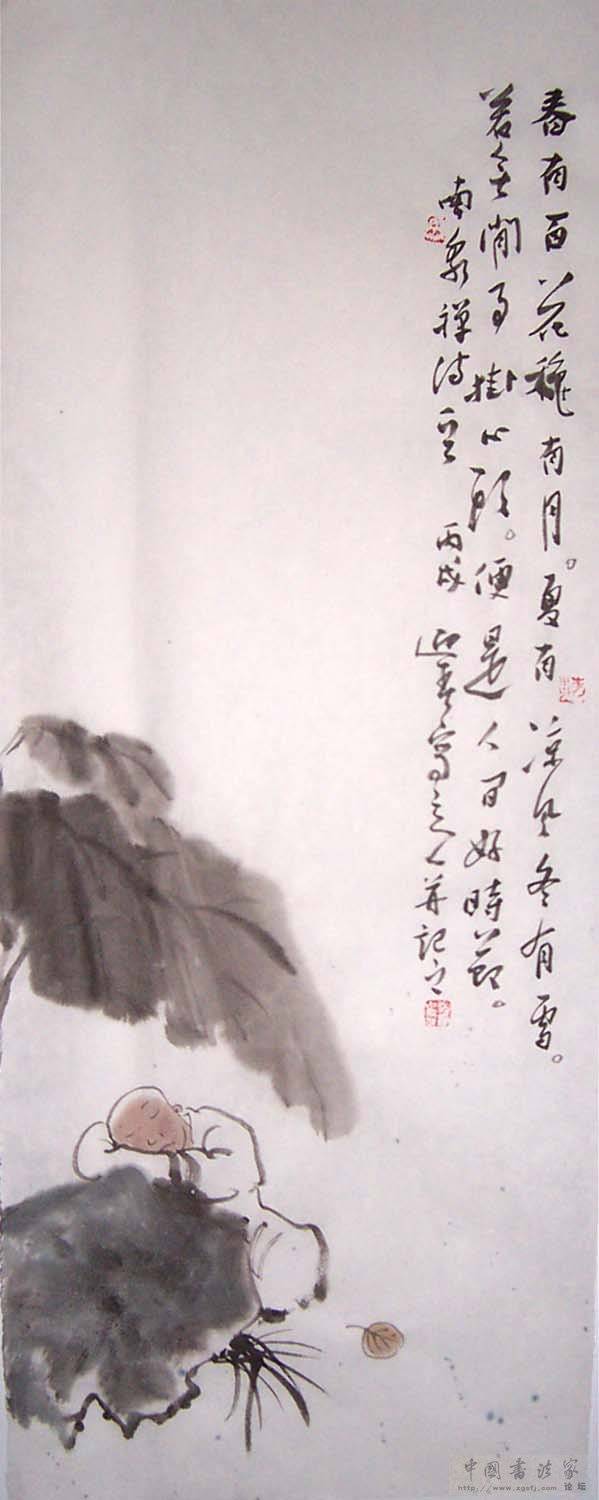 春有百花秋有月。夏有涼風冬有雪。
若無閒事掛心頭。便是人间好時節。
南泉禅诗意 丙戌 迎春写意并記之
中國書法家
论坛
http://www.xgsfj.com